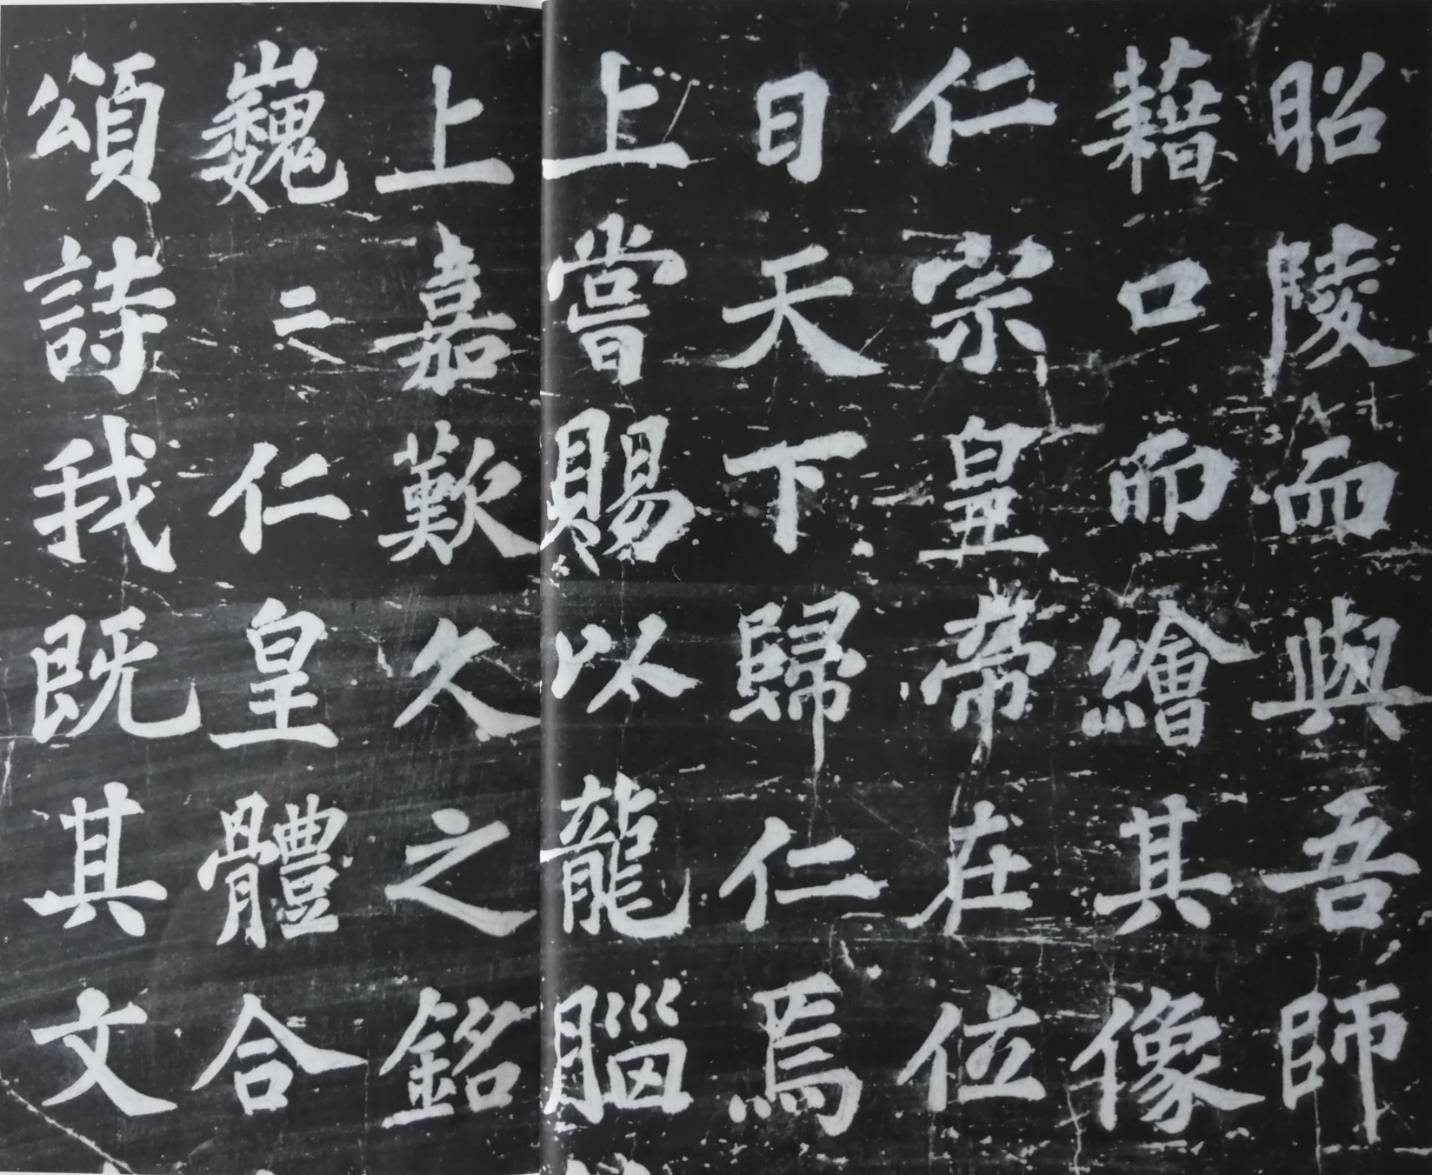 昭陵而與吾師
藉口而繪其像
仁宗皇帝在位
日天下歸仁焉
上嘗賜以龍腦
上嘉歎久之銘
巍二仁皇體合
頌詩我既其文